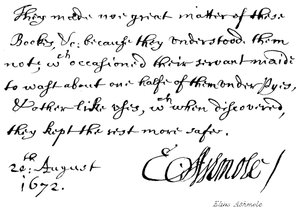 They made noe great matter of these
Bookes, &c: because they understood them
not; wch occasioned their servant maide
to wast about one halfe of them under Pyes,
& other like uses, wch when discovered,
they kept the rest more safe.
20: August
1672.
E Ashmole
Elias Ashmole